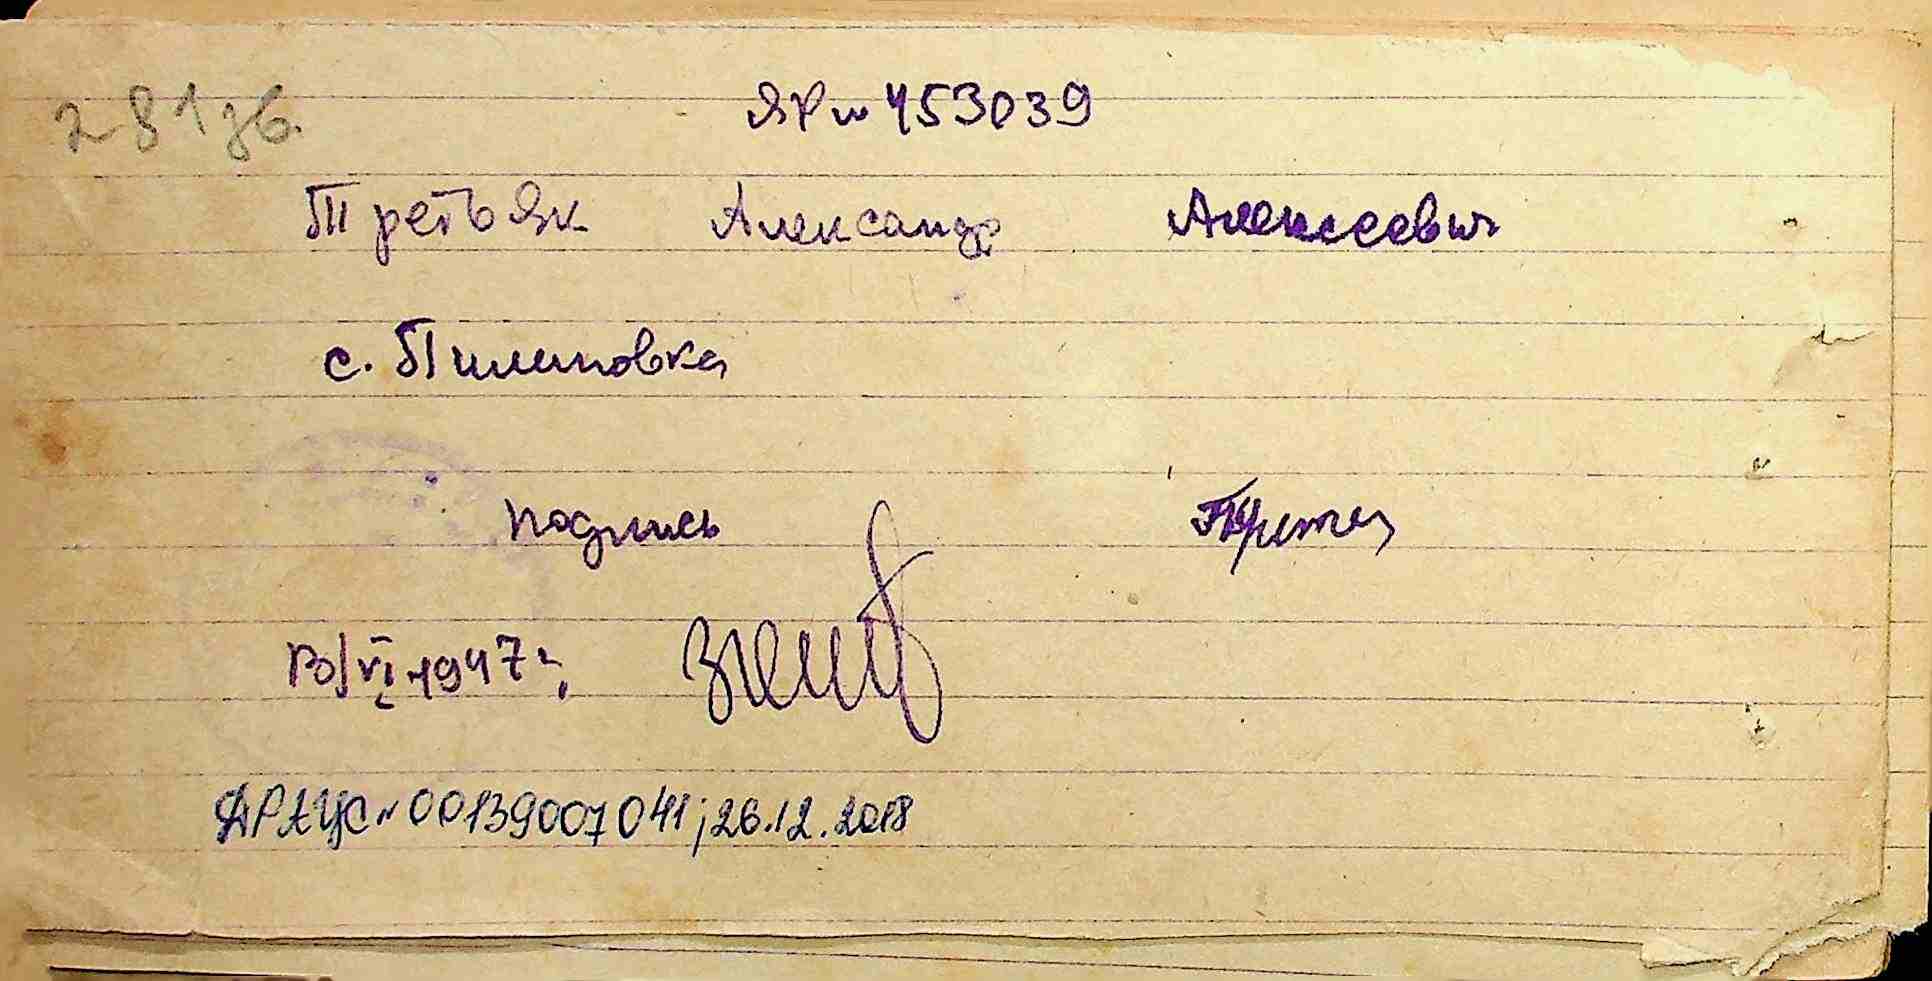 281 зв.
ЯР № 453039
Третьяк Александр Алексеевич
с. Пилиповка
подпись
13/VI 1947 г.
ДРАЦС № 00139007041; 26.12.2018